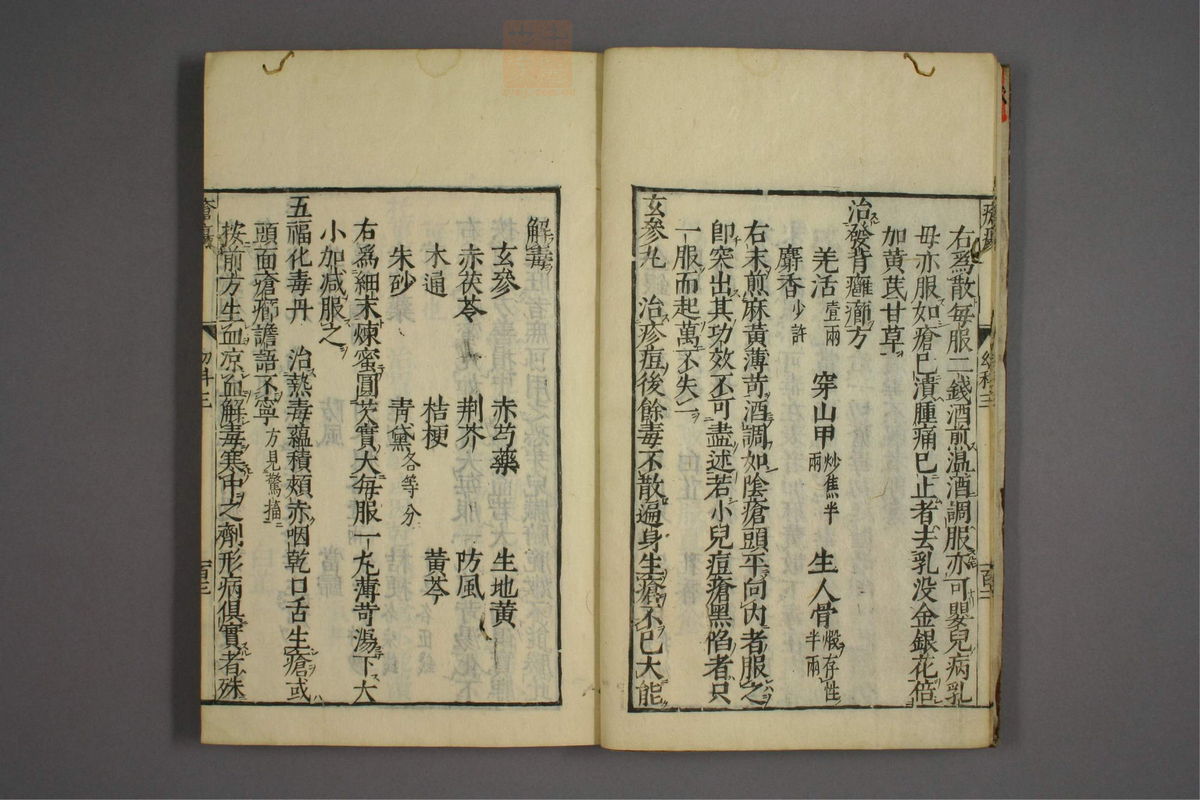 右爲散毎服二錢酒煎温酒調服亦可嬰兒病乳
母亦服如瘡已潰腫痛已止者去乳没金銀花倍
加黄芪甘草
治發背癰癤方
羌活壹兩 穿山甲炒焦半兩 生人骨煅存性半兩
麝香少許
右末煎麻黄薄苛酒調如陰瘡頭平向内者服之
卽突出其功效不可盡述若小兒痘瘡黑陷者只
一服而起萬不失一
玄參丸 治疹痘後餘毒不散遍身生瘡不已大能
解毒
玄參 赤芍藥 生地黄
赤茯苓 荆芥 防風
木通 桔梗 黄芩
朱砂 青黛各等分
右爲細末煉蜜圓芡實大毎服一丸薄苛湯下大
小加減服之
五福化毒丹 治熱毒蘊積頰赤咽乾口舌生瘡或
頭面瘡癤譫語不寧方見驚搐
按前方生血凉血解毒寒中之劑形病俱實者殊
幼科三
百二
幼科三
百三